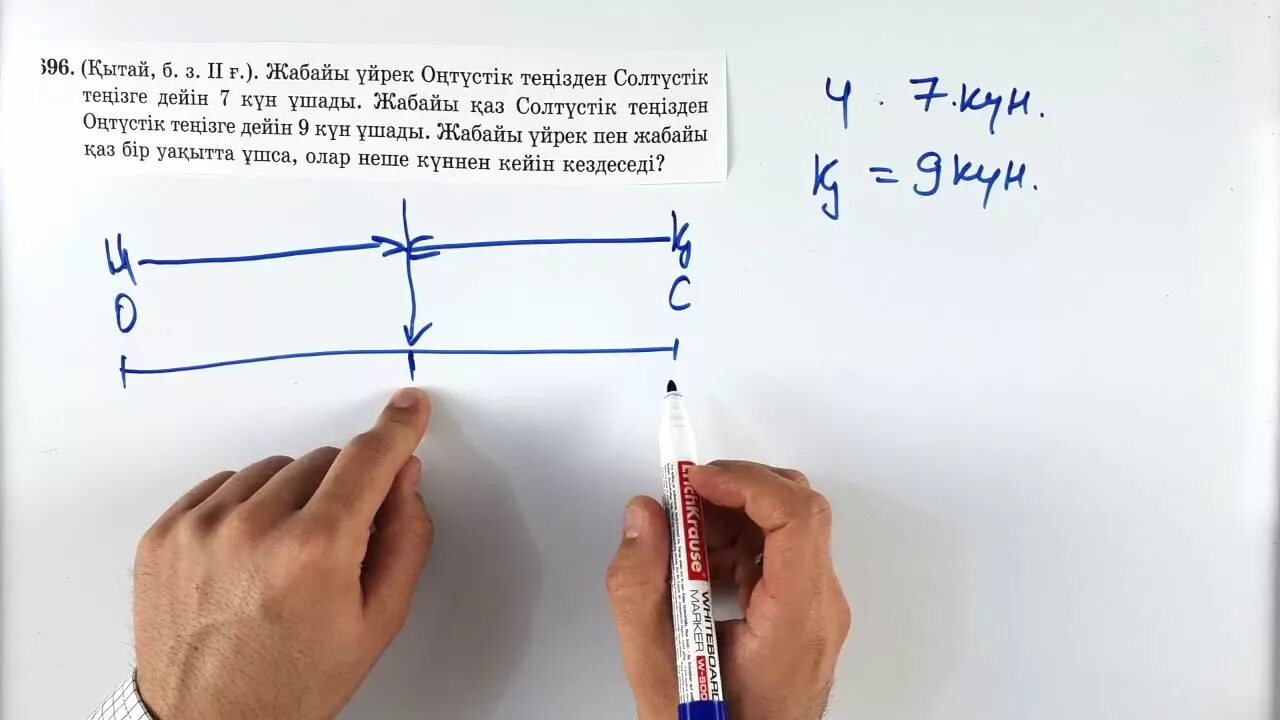 696. (Қытай, б. з. II ғ.). Жабайы үйрек Оңтүстік теңізден Солтүстік
теңізге дейін 7 күн ұшады. Жабайы қаз Солтүстік теңізден
Оңтүстік теңізге дейін 9 күн ұшады. Жабайы үйрек пен жабайы
қаз бір уақытта ұшса, олар неше күннен кейін кездеседі?
Ү · 7 күн.
Қ = 9 күн.
Ү
Қ
О
С
ErichKrause
WHITEBOARD
MARKER W-500